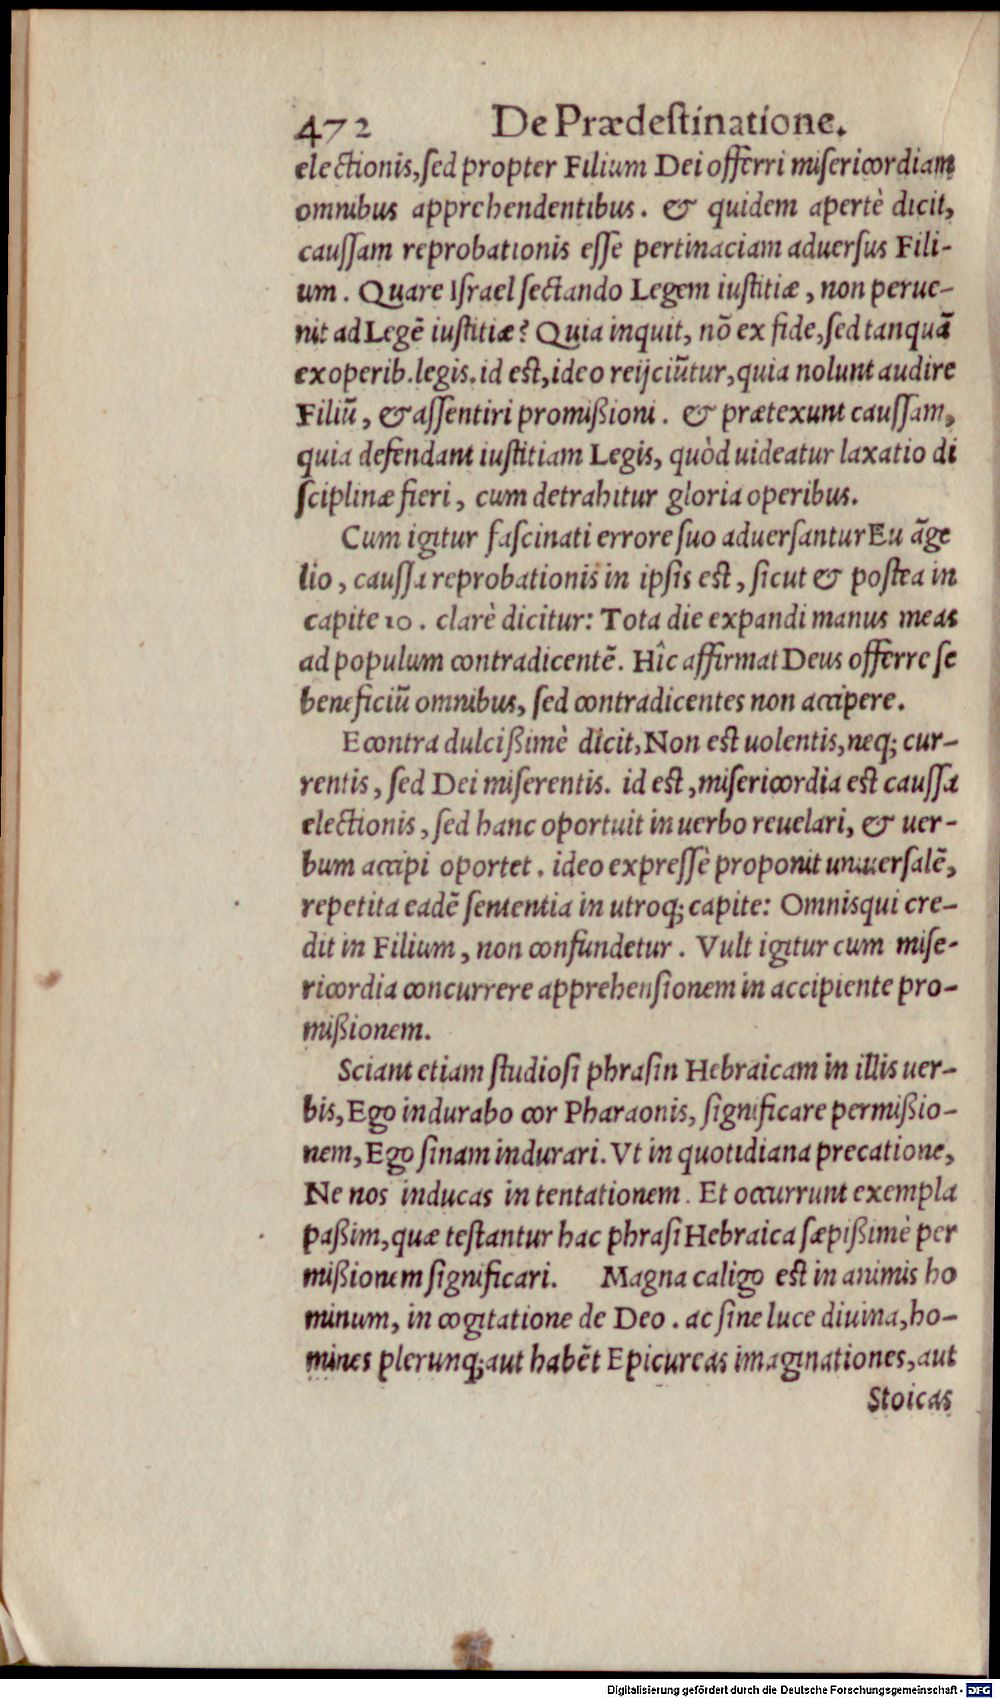 472 De Prædeſtinatione.
electionis, ſed propter Filium Dei offerri miſericordiam
omnibus apprehendentibus. & quidem apertè dicit,
cauſſam reprobationis eſſe pertinaciam aduerſus Fili-
um. Quare Iſrael ſectando Legem iuſtitiæ, non perue-
nit ad Legē iuſtitiæ? Quia inquit, nō ex fide, ſed tanquā
ex operib. legis. id eſt, ideo reijciūtur, quia nolunt audire
Filiū, & aſſentiri promißioni. & prætexunt cauſſam,
quia defendant iuſtitiam Legis, quòd uideatur laxatio di
ſciplinæ fieri, cum detrahitur gloria operibus.
Cum igitur faſcinati errore ſuo aduerſantur Eu āge
lio, cauſſa reprobationis in ipſis eſt, ſicut & poſtea in
capite 10. clarè dicitur: Tota die expandi manus meas
ad populum contradicentē. Hîc affirmat Deus offerre ſe
beneficiū omnibus, ſed contradicentes non accipere.
Econtra dulcißimè dicit, Non eſt uolentis, neq; cur-
rentis, ſed Dei miſerentis. id eſt, miſericordia eſt cauſſa
electionis, ſed hanc oportuit in uerbo reuelari, & uer-
bum accipi oportet. ideo expreſſè proponit uniuerſalē,
repetita eadē ſententia in utroq; capite: Omnis qui cre-
dit in Filium, non confundetur. Vult igitur cum miſe-
ricordia concurrere apprehenſionem in accipiente pro-
mißionem.
Sciant etiam ſtudioſi phraſin Hebraicam in illis uer-
bis, Ego indurabo cor Pharaonis, ſignificare permißio-
nem, Ego ſinam indurari. Vt in quotidiana precatione,
Ne nos inducas in tentationem. Et occurrunt exempla
paßim, quæ teſtantur hac phraſi Hebraica ſæpißimè per
mißionem ſignificari. Magna caligo eſt in animis ho
minum, in cogitatione de Deo. ac ſine luce diuina, ho-
mines plerunq; aut habēt Epicureas imaginationes, aut
Stoicas
Digitalisierung gefördert durch die Deutsche Forschungsgemeinschaft - DFG